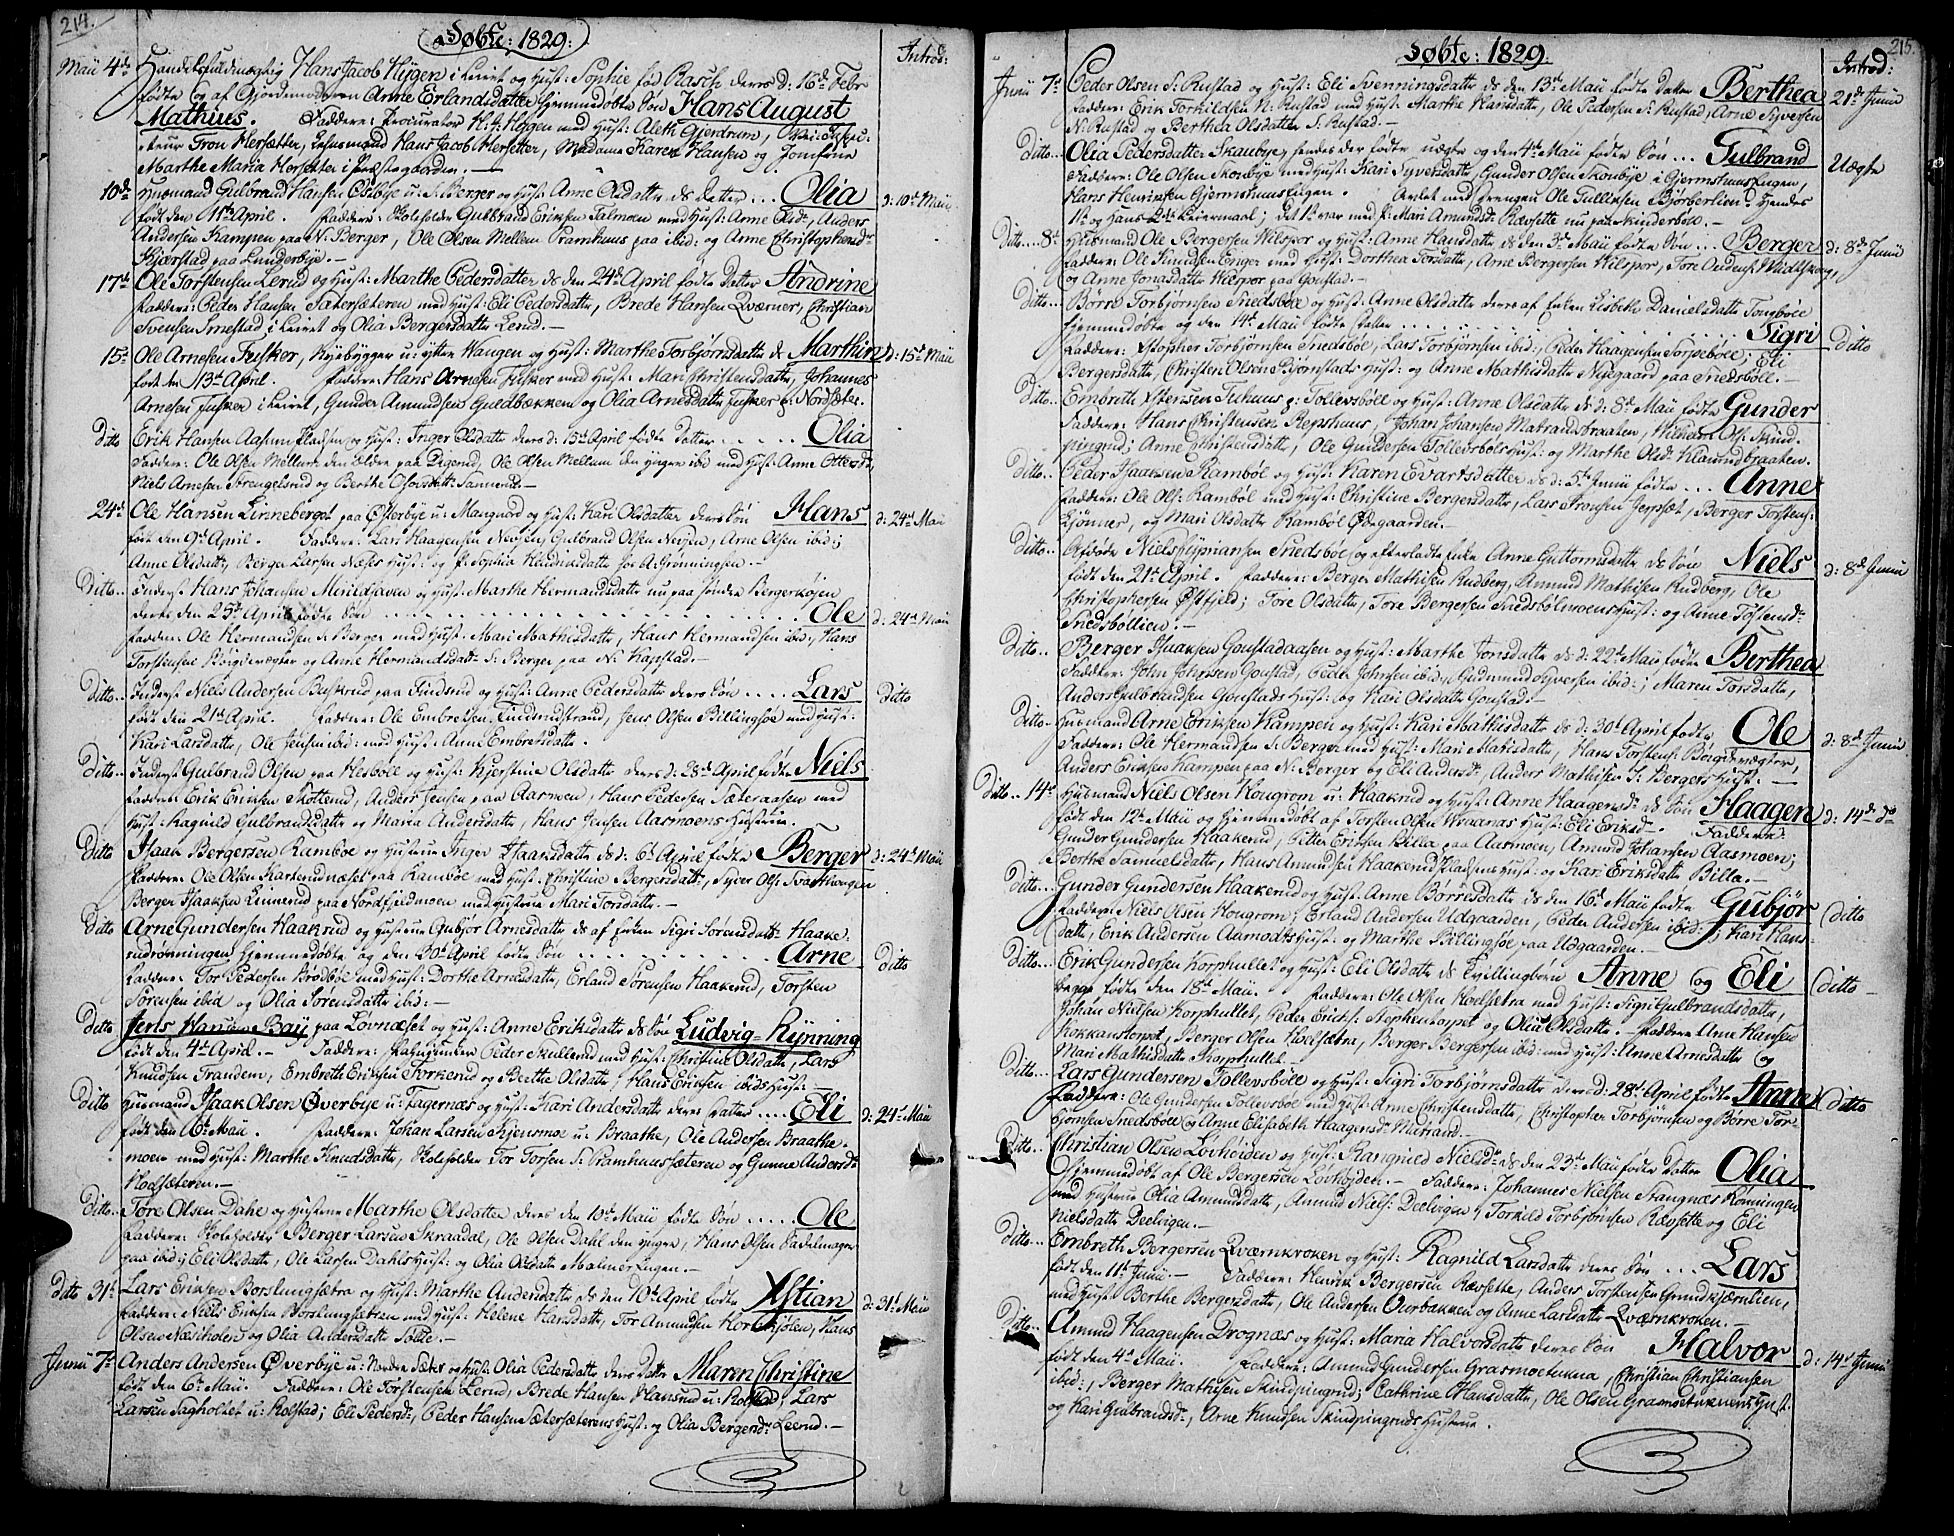 214.
Døbte: 1829:
Introd:
Maii 4de Handelsfuldmægtig Hans Jacob Hÿgen i Leiret og Hust: Sophie fød Rasch deres d: 16de Febr
fødte og af Gjordemoderen Anne Erlandsdatter hjemmedøbte Søn Hans August
Mathius. Faddere: Procurator H: J: Hÿgen med Hust: Aleth Gjerdrum,
Tron Hersætter, Hans Jacob Hersetter, Madame Karen Hansen og Jomfrue
Marthe Maria Hersetter i Præstegaarden.—
10de Husmand Gulbrand Hansen u: S: Berger og Hust: Anne Olsdatter ds datter ... Olia d: 10de Maii
født den 11te April. Faddere: Gulbrand Eriksen Talmoen med Hust: Arne Olsdr, Anders
Andersen Kampen paa N: Berger, Ole Olsen Mellem Pramhuus paa ibid: og Anne Christophersdr
Kjærstad paa Lunderbÿe.—
17de Ole Torstensen Lerud og Hust: Marthe Pedersdatter ds den 24de April fødte datter Andrine
Faddere: Peder Hansen Sætersæteren med Hust: Eli Pedersdatter, Brede Hansen Qværner, Christian
Svensen Smestad i Leiret og Olia Bergersdatter Lerud.—
15de Ole Arnesen Fusker, Nÿebÿgger u: ÿttre Wangen og Hust: Marthe Torbjørnsdatter ds Marthin d: 15de Maii
født den 13de April. Faddere: Hans Arnesen Fusker med Hust: Mari Christensdatter, Johannes
Arnesen Fusker i Leiret, Gunder Amundsen Guldbækken og Olia Arnesdatter Fusker p: Nordsæter.
Ditto Erik Hansen Aasum Pladsen og Hust: Inger Olsdatter deres d: 15de April fødte datter ..... Olia
Faddere: Ole Olsen Mellum den ældre paa Digerud, Ole Olsen Mellum den ÿngre ibid med Hust: Anne Ottersdr,
Niels Arnesen Strengelsrud og Berthe Olsdatter Sannerud.—
24de Ole Hansen Linneberget paa Østerbÿe u: Maugaard og Hust: Kari Olsdatter deres Søn Hans d: 24de Maii
født den 9de April. Faddere: Lars Haagensen Nersen, Gulbrand Olsen Nersen, Arne Olsen ibid;
Anne Olsdatter, Berger Larsen Næser Hust: og
Ditto.. Inderst Hans Johansen og Hust: Marthe Hermandsdatter nu paa søndre Bergerkojen
deres den 25de April fødte Søn ............ Ole d: 24de Maii
Faddere: Ole Hermandsen S: Berger med Hust: Mari Mathisdatter, Hans Hermandsen ibid, Hans
Torstensen Bøigdevægter og Anne Hermandsdatter S: Berger paa N: Kapstad.—
Ditto.. Inderst Niels Andersen Buskrud paa Findsrud og Hust: Anne Pedersdatter deres Søn .... Lars Ditto
født den 21de April. Faddere: Ole Embretsen Findsrudstrand, Jens Olsen Billingsøe med Hust:
Kari Larsdatter, Ole Jensen ibid: med Hust: Anne Embretsdatter.
Ditto.. Inderst Gulbrand Olsen paa Hesbøle og Hust: Kjerstine Olsdatter deres d: 28de April fødte Niels
Faddere: Erik Eriksen Skotterud, Anders Jensen paa Aasmoen, Hans Pedersen Sæteraasen med
Hust: Ragnild Gulbrandsdatter og Maria Andersdatter, Hans Jensen Aasmoens Hustrue.
Ditto Isaak Bergersen Ramboe og Hustrue Inger Isaaksdatter ds d: 6te April fødte Berger d: 24de Maii
Faddere: Ole Olsen Karterudnæset paa Ramboe med Hust: Christine Bergersdatter, Siver Ols: Svarthougen
Berger Isaaksen Linnerud paa Nordfjeldmoen med Hustrue Mari Torsdatter.—
Ditto Arne Gundersen Haakrud og Hustrue Gubjør Arnesdatter ds af Enken Sigri Sørensdatter Haake:
rudrønningen hjemmedøbte og den 30te April fødte Søn ........... Arne Ditto
Faddere: Tor Pedersen Brodbøl med Hust: Dorthe Arnesdatter, Erland Sørensen Haakerud, Torsten
Sørensen ibid og Olia Sørensdatter ibid:—
Ditto Jens Hansen Baÿ paa Lovnæset og Hust: Anne Eriksdatter ds Søn Ludvig Rÿnning
født den 4de April.— Faddere: Peder Skullerud med Hust: Christine Olsdatter, Lars
Knudsen Trandem, Embreth Eriksen Torkerud og Berthe Olsdatter, Hans Eriksen ibids Hust:—
Ditto Husmand Isaak Olsen Øverbÿe u: Fagernæs og Hust: Kari Andersdatter deres datter .... Eli d: 24de Maii
født den 6te Maii. Faddere: Johan Larsen Kjensmoe u: Braathe, Ole Andersen Braathe-
moen med Hust: Marthe Knudsdatter, Tor Torsen S: Pramhuussæteren og Gunne Andersdr
Hodsæteren.—
Ditto.. Tore Olsen Dahl og Hustrue Marthe Olsdatter deres den 10de Maii fødte Søn ..... Ole
Faddere: Berger Larsen Skraadal, Ole Olsen Dahl den ÿngre, Hans Olsen Sadelmager
paa ibid; Eli Olsdatter, Ole Larsen Dahls Hust: og Olia Olsdatter Malmer Engen.—
Ditto 31te Lars Eriksen Børslungsætra og Hust: Marthe Andersdatter ds den 10de April fødte Xstian d: 31te Maii
Faddere: Niels Eriksen Børslungsætren med Hust: Helene Hansdatter, Tor Amundsen Horkjølen, Hans
Olsen Næsholen og Olia Andersdatter Tolte.—
Junii 7de Anders Andersen Øverbÿe u: Nordre Sæter og Hust: Olia Pedersdatter deres datter Maren Christine
født den 6te Maii. Faddere: Ole Torstensen Lerud, Brede Hansen Hansrud u: Kolstad, Lars
Larsen Sagholtet u: Kolstad; Eli Pedersdr, Peder Hansen Sætersæterens Hust: og Olia Bergersdr: Leerud.—
215.
Døbte: 1829.
Introd:
Junii 7de Peder Olsen S: Rustad og Hust: Eli Svenningsdatter ds den 13de Maii fødte datter Berthea 21de Junii
Faddere: Erik Torkildsen N: Rustad med Hust: Marthe Larsdatter, Ole Pedersen S: Rustad, Arne Sÿversen
N: Rustad og Berthea Olsdatter S: Rustad.—
Ditto... Olia Pedersdatter Skaubÿe, hendes der fødte uægte og den 4de Maii fødte Søn ... Gulbrand Uægte
Faddere: Ole Olsen Skoubÿe med Hust: Kari Sÿversdatter, Gunder Olsen Skoubÿe i Gjermshuus Engen,
Hans Henriksen Gjermshuus Engen. Avlet med Drengen Ole Tolliksen Bjørberlien: hendes
1te og hans 2de Leiermaal; det 1te var med f: Mari Amundsdr Ræfsette nu paa Skinderbøl.—
Ditto.... 8de Husmand Ole Bergersen Wilspor og Hust: Anne Hansdatter ds den 3de Maii fødte Søn ... Berger d: 8de Junii
Faddere: Ole Knudsen Enger med Hust: Dorthea Torsdatter, Arne Bergersen Wilspor, Tore Audens: Midtskoug,
og Anne Jonasdatter Wilspor paa Goustad.—
Ditto.. Børre Torbjørnsen Snedsbøle og Hust: Anne Olsdatter deres af Enken Lisbeth Danielsdatter Tongbøle
hjemmedøbte og den 14de Maii fødte datter ............ Sigri Ditto
Faddere: Xstopher Torbjørnsen Snedsbøl, Lars Torbjørnsen ibid; Peder Haagensen Torpebøle; Eli
Bergersdatter, Christen Olsen Bjørnstads Hust: og Anne Mathisdatter Nÿegaard paa Snedsbøll.—
Ditto.. Embreth Xstensen Tuhuus p: Tollevsbøll og Hust: Anne Olsdatter ds d: 8de Maii fødte Gunder
Faddere: Hans Christensen Repshuus, Johan Johansen Matrandsbraaten, Wilhelm Ols: Skind-
pingrud; Anne Christensdatter, Ole Gundersen Tollevsbøls Hust: og Marthe Olsdr Klamundbraaten.
Ditto.. Peder Isaaksen Rambøl og Hust: Karen Evartsdatter ds d: 5te Junii fødte ... Anne
Faddere: Ole Ols: Rambøl med Hust: Christine Bergersdatter, Lars Tronsen Jerpset, Berger Torstens:
Kjønner, og Mari Olsdatter Rambøl Ødegaarden.—
Ditto.. Afdøde Niels Cÿpriansen Snedsbøl og efterladte Enke Anne Guttormsdatter ds Søn Niels d: 8de Junii
født den 21de April. Faddere: Berger Mathisen Rudberg, Amund Mathisen Rudberg, Ole
Christophersen Østfjeld; Tore Olsdatter, Tore Bergersen Snedsbølmoens Hust: og Anne Torstensdr
Snedsbøllien.—
Ditto.. Berger Isaaksen Goustadaasen og Hust: Marthe Jonsdatter ds d: 22de Maii fødte Berthea
Faddere: John Johnsen Goustad, Peder Johnsen ibid, Gudmund Sÿversen ibid:; Maren Torsdatter,
Anders Gulbrandsen Goustads Hust: og Kari Olsdatter Goustad.—
Ditto.. Husmand Arne Eriksen Kampen og Hust: Kari Mathisdatter ds d: 30te April fødte Ole d: 8de Junii
Faddere: Ole Hermandsen S: Berger med Hust: Mari Mathisdatter, Hans Torstens: Bøigdevægter,
Anders Eriksen Kampen paa N: Berger og Eli Andersdr, Anders Mathisen S: Bergers Hust:—
Ditto.. 14de Husmand Niels Olsen Hougrom u: Haakrud og Hust: Anne Haagensdr ds Søn Haagen d: 14de do
født den 12te Maii og hjemmedøbt af Torsten Olsen Hust: Eli Eriksdr. Faddere:
Gunder Gundersen Haakerud, Petter Eriksen Billa paa Aasmoen, Amund Johansen Aasmoen;
Berthe Samuelsdatter, Hans Amundsen Haakerud Pladsens Hust: og Kari Eriksdatter Billa.—
Ditto... Gunder Gundersen Haakerud og Hust: Anne Børresdatter ds den 16de Maii fødte Gubjør Ditto
Faddere: Niels Olsen Hougrom, Erland Andersen Udgaarden, Peder Andersen ibid:; Kari Hans-
datter, Erik Andersen Aamodts Hust: og Marthe Billingsøe paa Udgaarden.—
Ditto... Erik Gundersen Korphullet og Hust: Eli Olsdatter ds Tvillingbørn Anne og Eli Ditto
begge fødte den 18de Maii. Faddere: Ole Olsen Hoelsætra med Hust: Sigri Gulbrandsdatter,
Johan Nielsen Korphullet, Peder Eriks: Stophentorpet og Olia Olsdatter.— Faddere: Arne Hansen
Kokkanstorpet, Berger Olsen Hoelsætra, Berger Bergersen ibid: med Hust: Anne Arnesdatter og
Mari Mathisdatter Korphullet.—
Ditto... Lars Gundersen Tollevsbøle og Hust: Sigri Torbjørnsdatter deres d: 28de April fødte Anne Ditto
Faddere: Ole Gundersen Tollevsbøl med Hust: Anne Christensdatter, Christopher Torbjørnsen og Børre Tor-
bjørnsen Snedsbøle og Anne Elisabeth Haagensdr Matrand.—
Ditto.. Christian Olsen Lovhøiden og Hust: Rangnild Nielsdr ds den 23de Maii fødte datter Olia
hjemmedøbt af Ole Bergersen Lovhøjden.— Faddere: Johannes Nielsen Stangnæs Rønningen
med Hustrue Olia Amundsdatter, Amund Niels: Deelvigen, Torkild Torbjørnsen Ræfsette og Eli
Nielsdatter Deelvigen.—
Ditto.. Embreth Bergersen Qværnkroken og Hust: Ragnild Larsdatter deres Søn ... Lars
født den 11te Junii.— Faddere: Henrik Bergersen Ræfsette, Anders Torstensen Grundkjærnlien,
med Hust: Berthe Bergersdatter, Ole Andersen Ourbakken og Anne Larsdatter Qværnkroken.—
Ditto.. Amund Haagensen Drognæs og Hust: Maria Halvorsdatter deres Søn Halvor d: 14de Junii
født den 4de Maii. Faddere: Amund Gundersen Grasmoetunna, Christian Christiansen
ibid:, Berger Mathisen Skindpingrud; Cathrine Hansdatter, Ole Olsen Grasmoetunnens Hust:
og Kari Gulbrandsdr, Arne Knudsen Skindpingruds Hustrue.